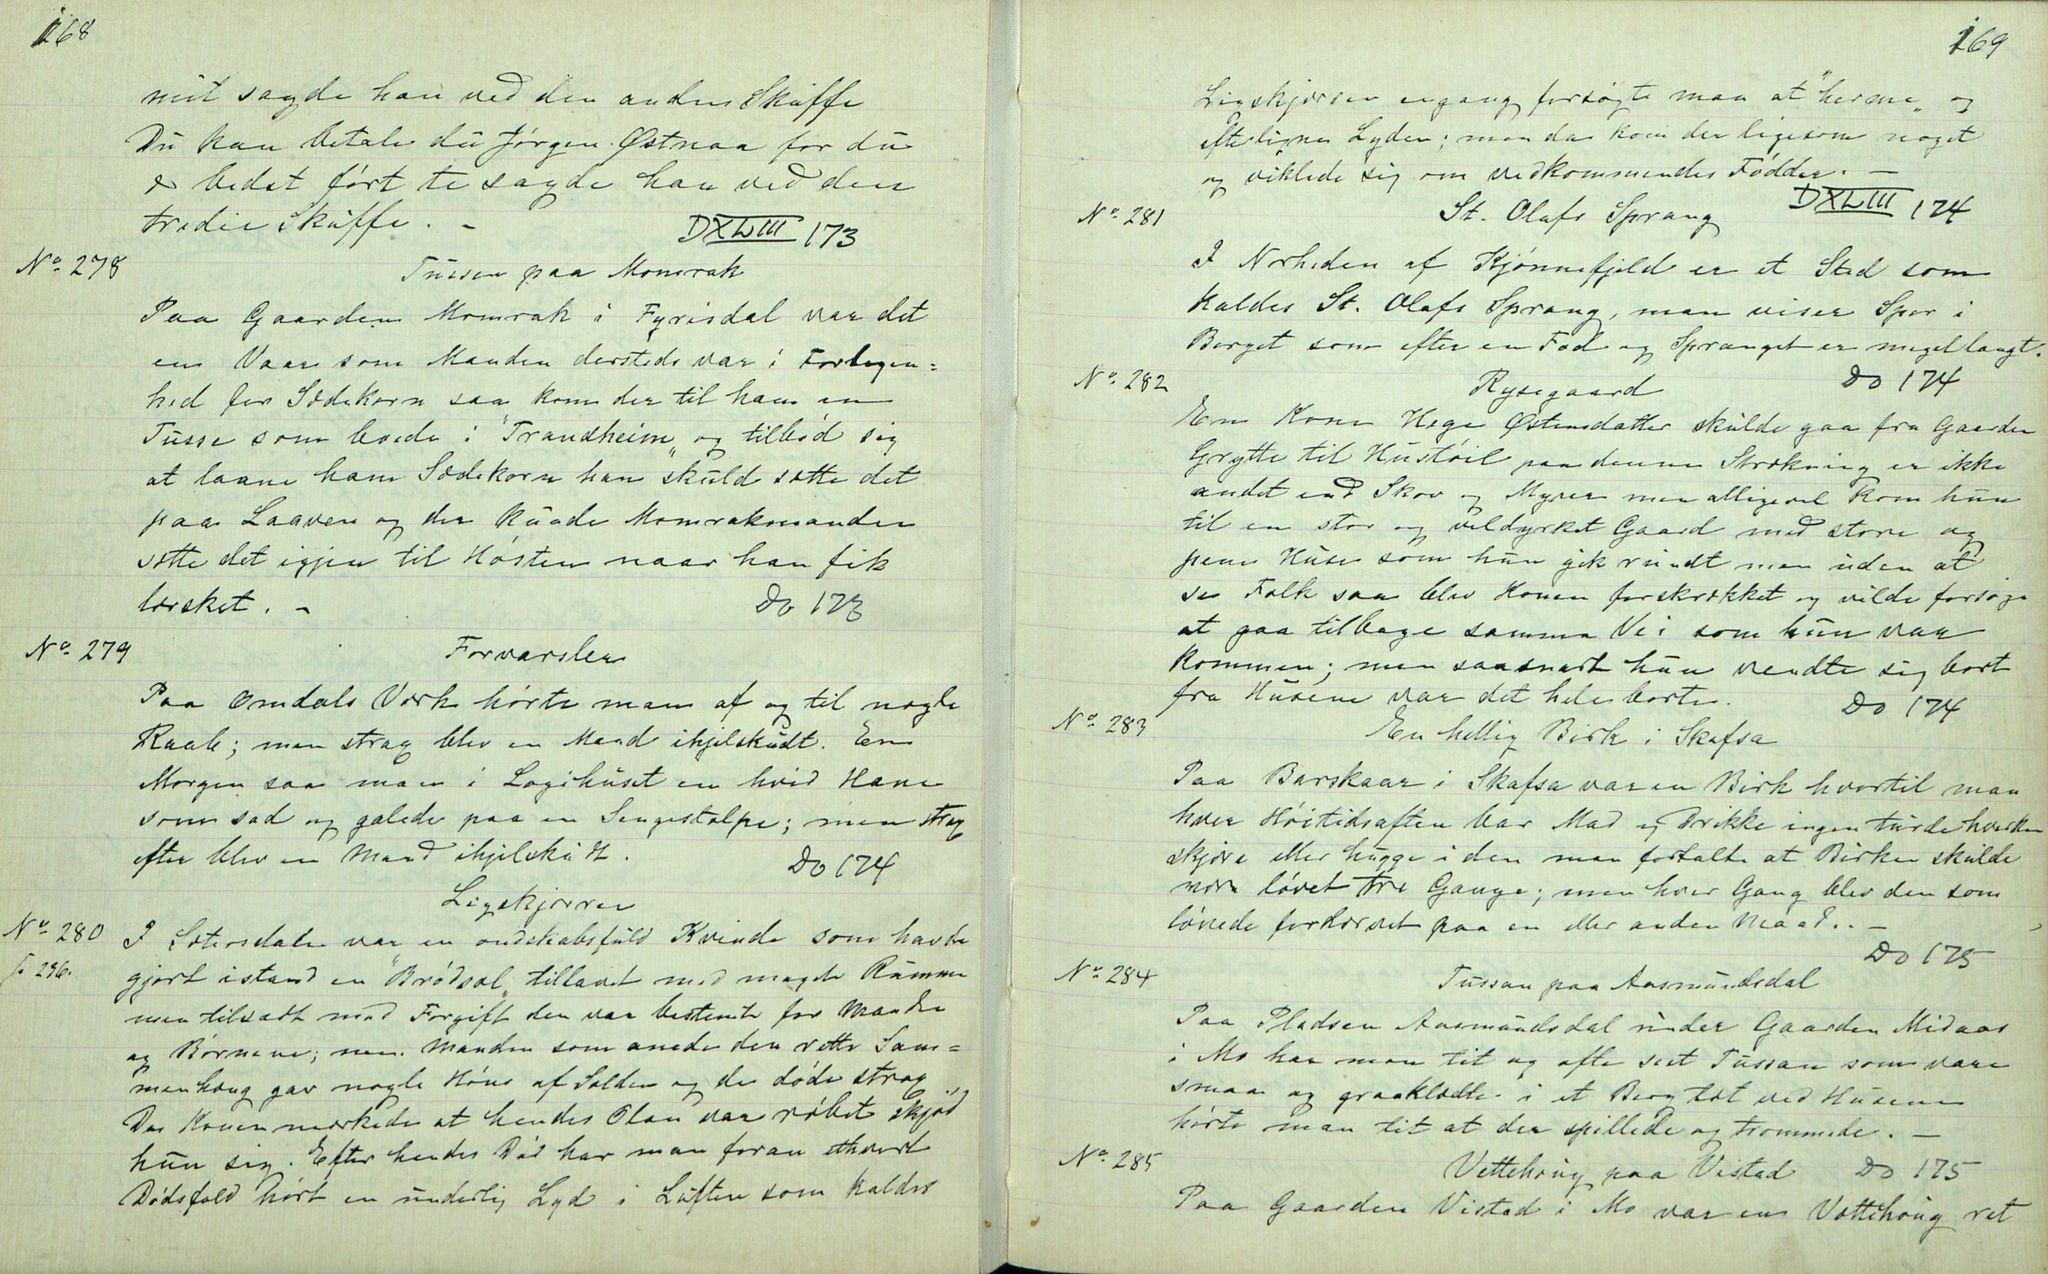 168
mit sagde han ved den anden Skuffe
Du kan betale du Jørgen Østnaa for du
æ bedst ført te sagde han ved den
tredie Skuffe. -
DXLIII 173
No. 278
Tussen paa Momrak
Paa Gaarden Momrak i Fyrisdal var det
en Vaar som Manden dersteds var i Forlegen=
hed for Sædekorn saa kom der til ham en
Tusse som boede i "Trandheim" og tilbød sig
at laane ham Sædekorn han skuld sætte det
paa Laaven og der kunde Momrakmanden
sætte det igjen til Høsten naar han fik
tærsket. -
Do 173
No. 279
Forvarsler
Paa Omdals Værk hørte man af og til nogle
Raab; men strax blev en Mand ihjelskudt. En
Morgen saa man i Logihuset en hvid Hane
som sad og galede paa en Sengestolpe; men strax
efter blev en Mand ihjelskudt.
Do 174
Ligskjærren
No. 280
I Sætersdalen var en ondskabsfuld Kvinde som havde
gjort istand en "Brødsol" tillavet med meget Rømme
men tilsadt med Forgift den var bestemt for Manden
og Børnene; men Manden som anede den rette Sam=
menhæng gav nogle Høns af Solden og de døde strax
Da Konen mærkede at hendes Plan var røbet skjød
hun sig. Efter hendes Død har man foran ethvert
Dødsfald hørt en underlig Lyd i Luften som kaldes
169
Ligskjærren engang forsøgte man at "herme" og
efterligne Lyden; men da kom der ligesom noget
og viklede sig om vedkommendes Fødder. -
DXLIII 174
No. 281
St. Olafs Sprang
I Nærheden af Kjønnefjeld er et Sted som
kaldes St. Olafs Sprang, man viser Spor i
Berget som efter en Fod og Spranget er meget langt.
Do 174
No. 282
Rysegaard
En Kone Hege Østensdatter skulde gaa fra Gaarden
Grytte til Hustøil paa denne Strækning er ikke
andet end Skov og Myrer men alligevel kom hun
til en stor og veldyrket Gaard med store og
pene Huse som hun gik rundt men uden at
se Folk saa blev Konen forskrækket og vilde forsøge
at gaa tilbage samme Vei som hun var
kommen; men saasnart hun vendte sig bort
fra Husene var det hele borte.
Do 174
No. 283
En hellig Birk i Skafsa
Paa Barskaar i Skafsa var en Birk hvortil man
hver Høitidsaften bar Mad og Drikke ingen turde hverken
skjære eller hugge i den man fortalte at Birken skulde
være løvet tre Gange; men hver Gang blev den som
løvede fordærvet paa en eller anden Maad. -
Do 175
No. 284
Tussan paa Aasmundsdal
Paa Pladsen Aasmundsdal under Gaarden Midaas
i Mo har man tit og ofte seet Tussan som vare
smaa og graaklædte i et Berg tæt ved Husene
hørte man tit at der spillede og trommede. -
Do 175
No. 285
Vettehoug paa Vistad
Paa Gaarden Vistad i Mo var en Vættehoug ret